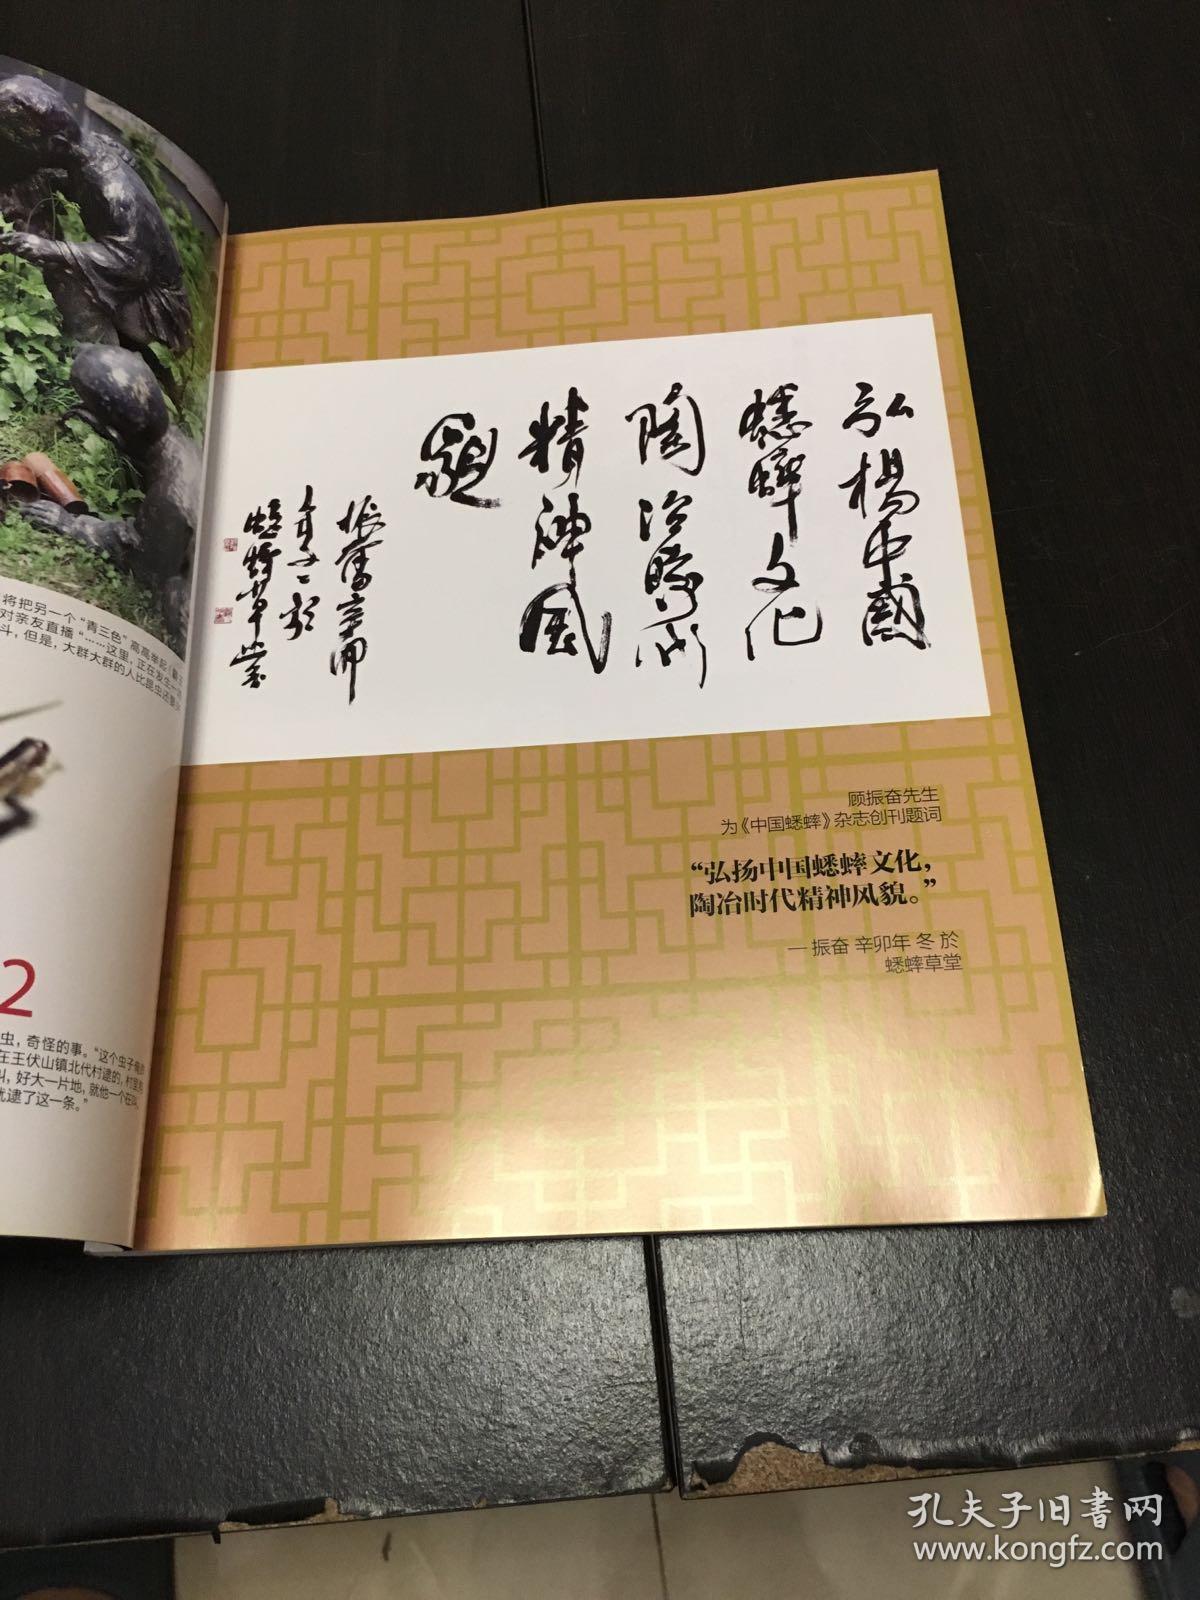 弘楊中國
蟋蟀文化
陶冶時代
精神風
貌
振奮辛卯
年冬於
蟋蟀草堂
顾振奋先生
为《中国蟋蟀》杂志创刊题词
“弘扬中国蟋蟀文化，
陶冶时代精神风貌。”
— 振奋 辛卯年 冬 於
蟋蟀草堂
将把另一个“青三色”高高举起
对亲友直播“……这里，正在发生一
斗，但是，大群大群的人比昆虫还要
2
虫，奇怪的事。“这个虫子
在王伏山镇北代村逮的，村里
叫，好大一片地，就他一个在叫，
就逮了这一条。”
孔夫子旧书网
www.kongfz.com